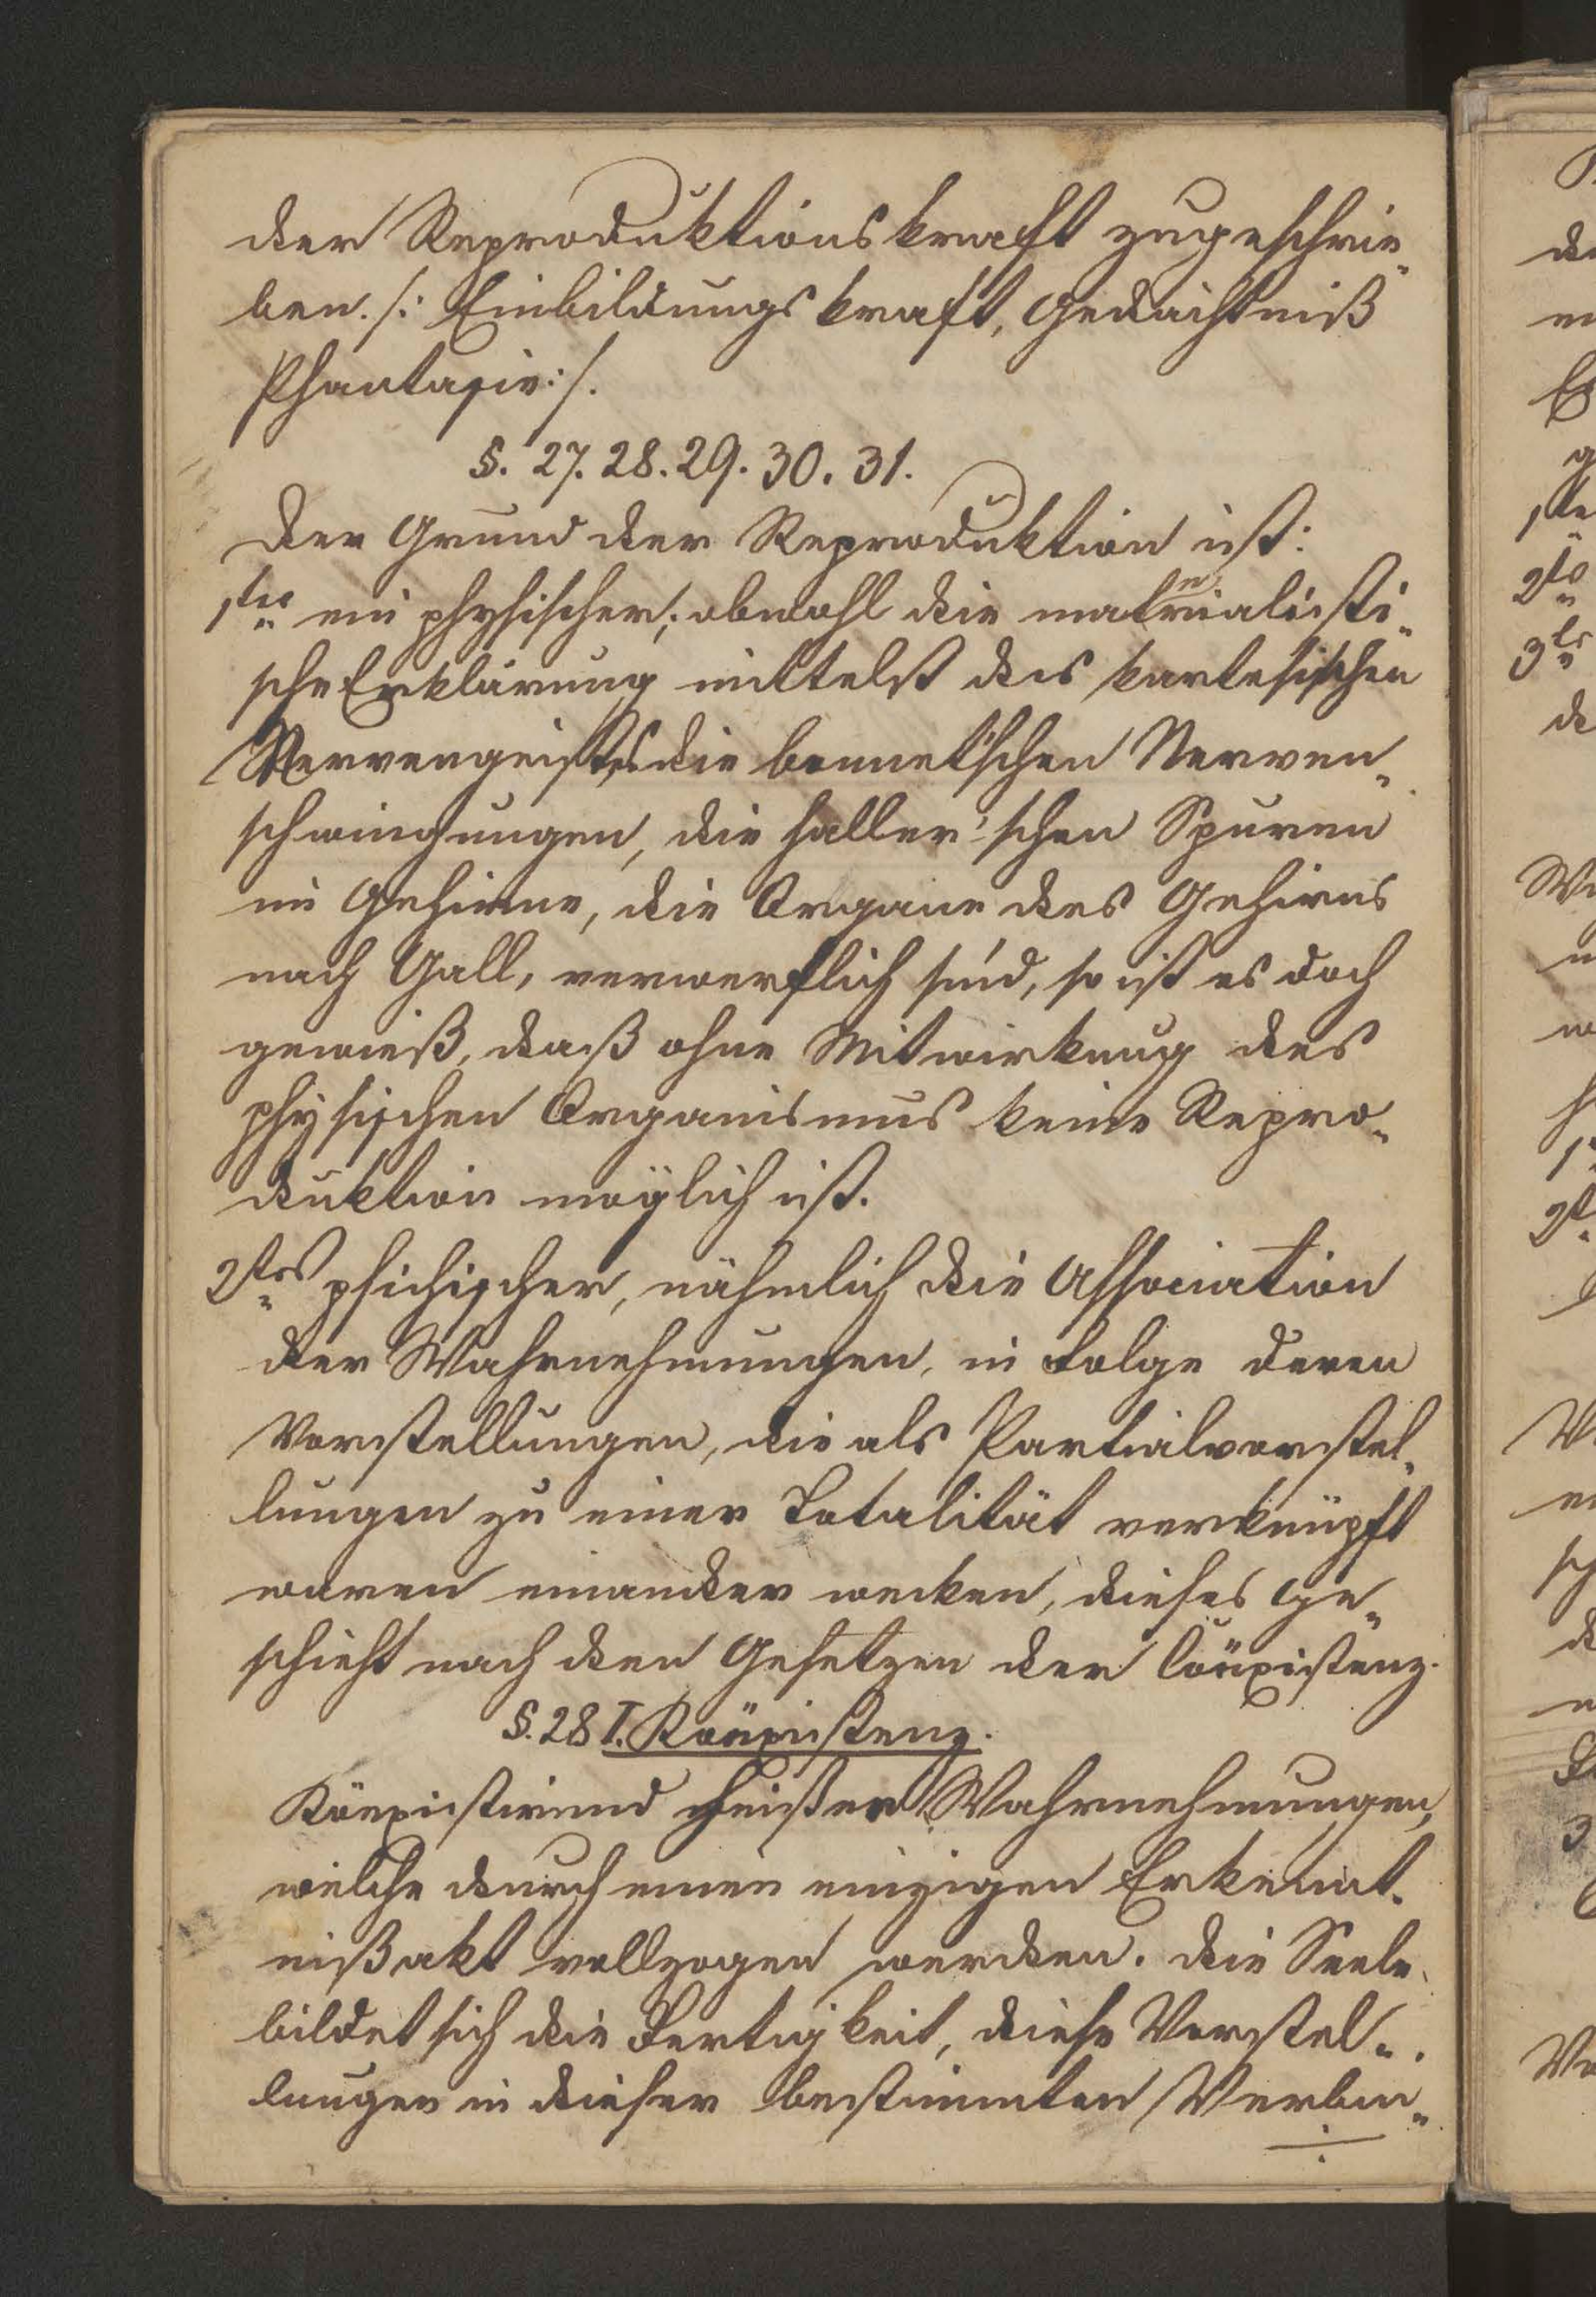 der Reproduktionskraft zugeschrie„
ben. /: Einbildungskraft, Gedächtniß
Phantasie :/.
§. 27. 28. 29. 30. 31.
Der Grund der Reproduktion ist:
1tes ein physischer; obwohl die materialisti„
sche Erklärung mittelst des kartesischen
Nervengeistes die bonnet'schen Nerven„
schwingungen, die haller'schen Spuren
im Gehirne, die Organe des Gehirns
nach Gall, verwerflich sind, so ist es doch
gewieß, daß ohne Mitwirkung des
physischen Organismus keine Repro„
duktion möglich ist.
2tes psichischer, nähmlich die Association
der Wahrnehmungen, in Folge deren
Vorstellungen, die als Partialvorstel„
lungen zu einer Totalität verknüpft
waren einander wecken, dieses ge„
schieht nach den Gesetzen der Cöexistenz.
§. 28 I. Koëxistenz.
Köexistirend heißen Wahrnehmungen,
welche durch einen einzigen Erkennt„
nißakt vollzogen werden. Die Seele
bildet sich die Fertigkeit, diese Vorstel„
lungen in dieser bestimmten Verbin„